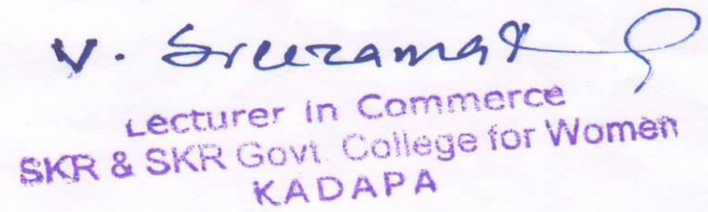 V.
Lecturer in Commerce
SKR & SKR Govt. College for Women
KADAPA